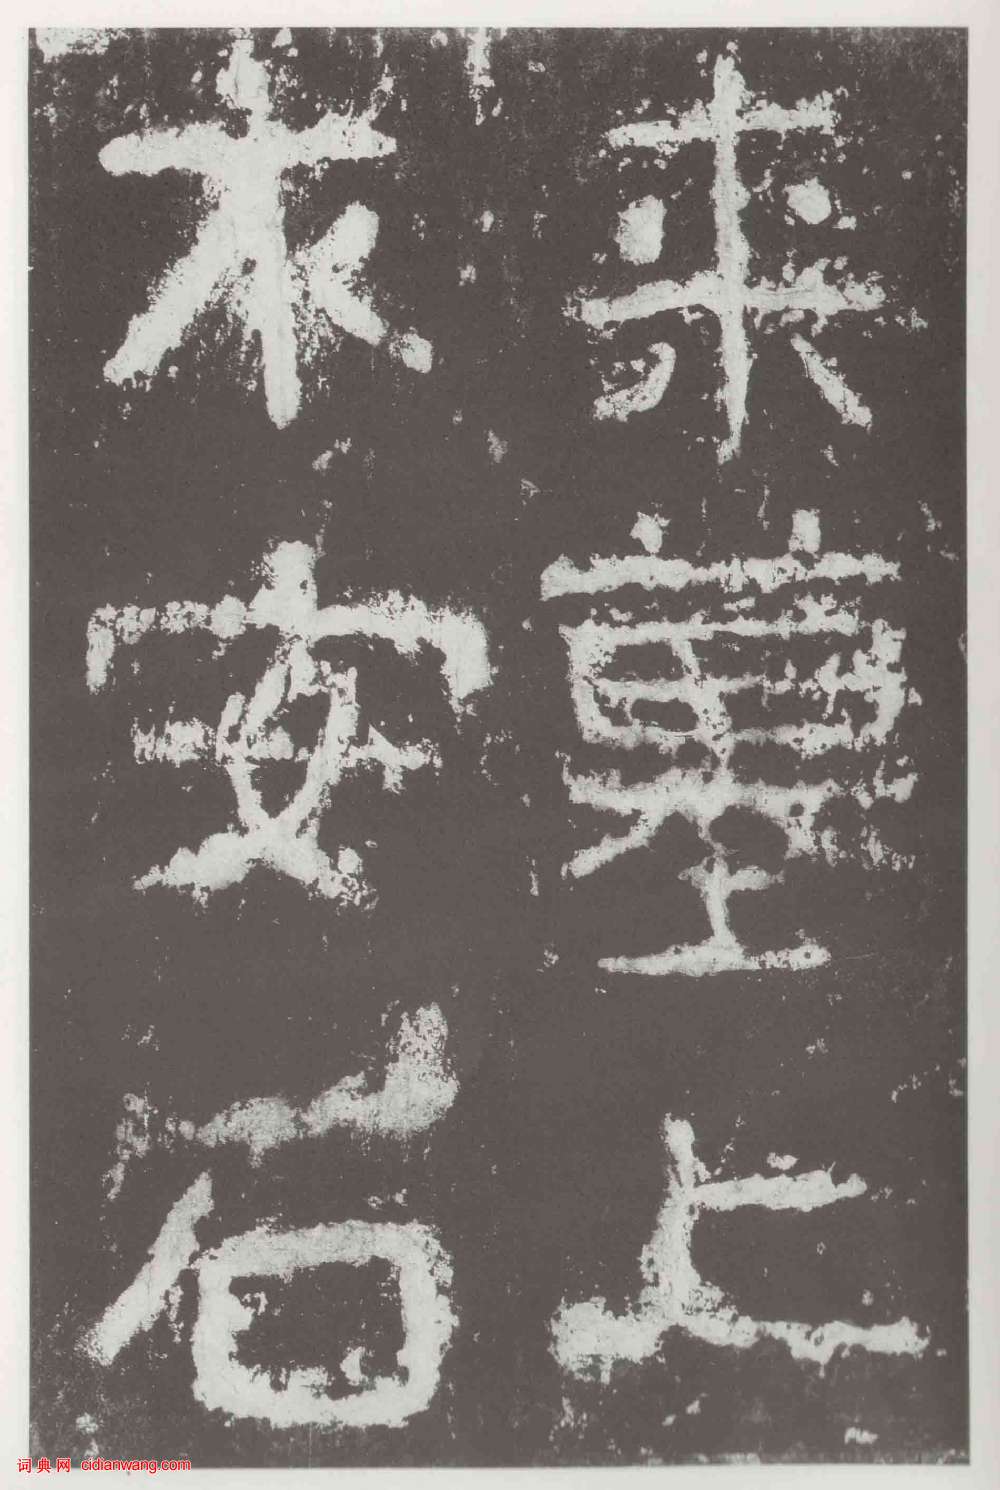 来墓上
木安石
词典网 cidianwang.com